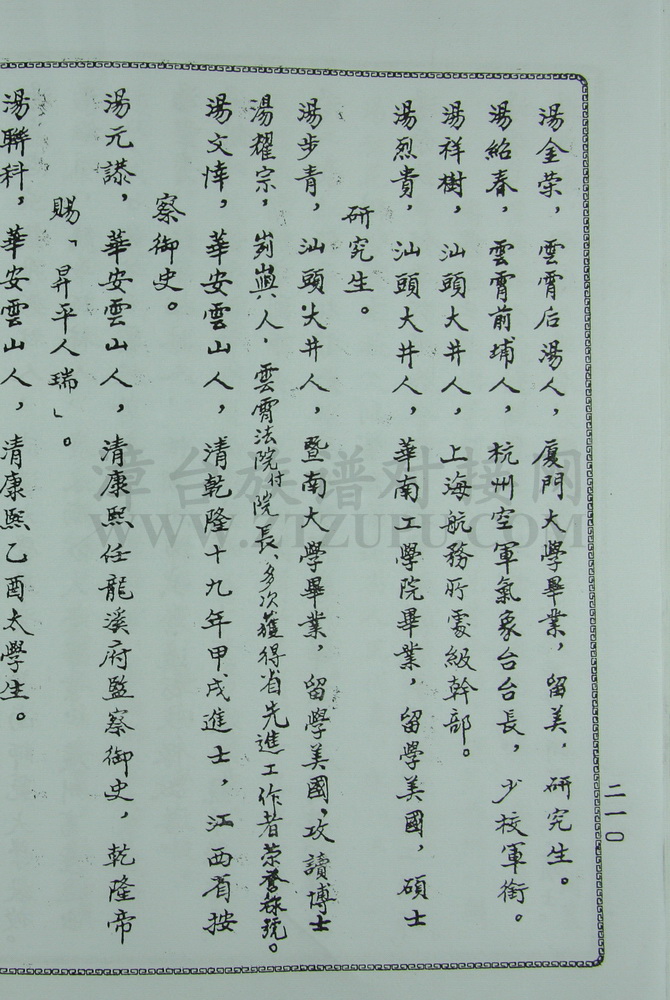 湯金荣，雲霄后湯人，廈門大學畢業，留美，研究生。
湯紹春，雲霄前埔人，杭州空軍氣象台台長，少校軍銜。
湯祥樹，汕頭大井人，上海航務所處級幹部。
湯烈貴，汕頭大井人，華南工學院畢業，留學美國，碩士
研究生。
湯步青，汕頭大井人，暨南大學畢業，留學美國，攻讀博士
湯耀宗，峛嶼人，雲霄法院付院長、多次獲得省先進工作者荣誉称號。
湯文悻，華安雲山人，清乾隆十九年甲戌進士，江西省按
察御史。
湯元謀，華安雲山人，清康熙任龍溪府監察御史，乾隆帝
賜「昇平人瑞」。
湯聯科，華安雲山人，清康熙乙酉太學生。
二一〇
漳台族谱对接网
WWW.ZTZUPU.COM